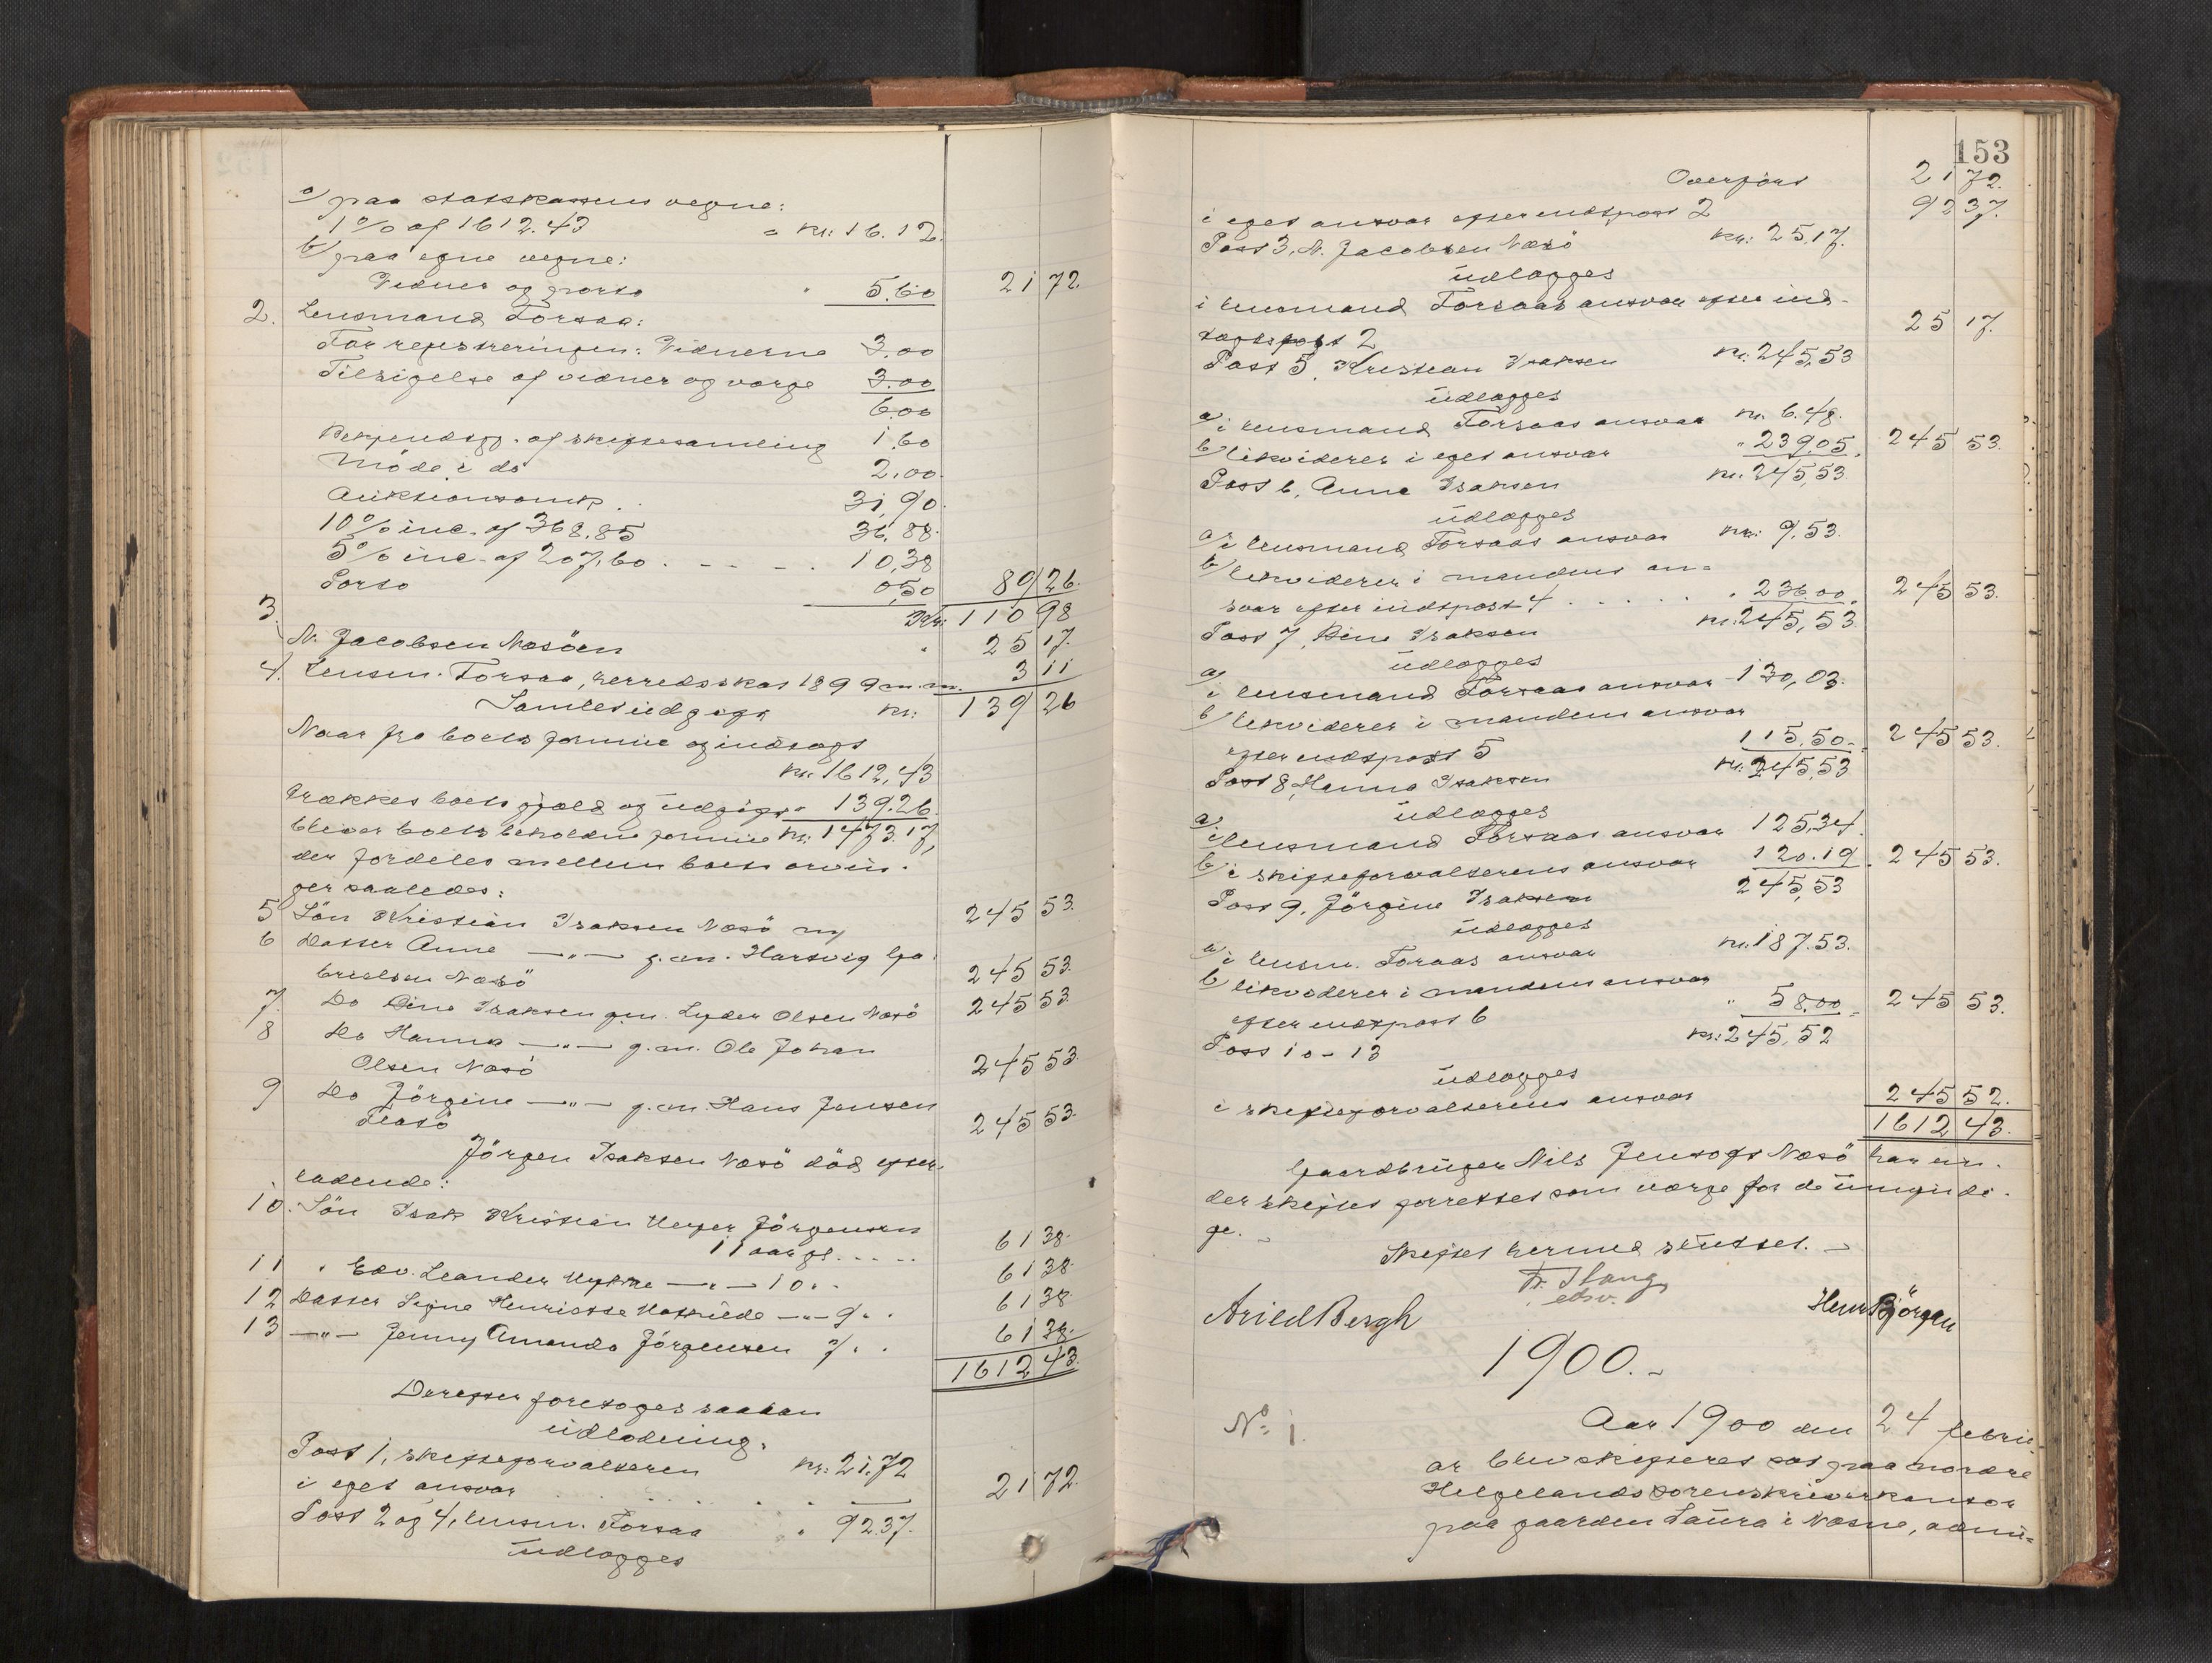 a) paa statskassens vegne:
1% of 1612.43 = kr: 16.12.
b) paa egne vegne:
Vidner og porto " 5.60 21 72.
2. Lensmand Forsaa:
For registreringen: Vidnerne 3.00
Tilsigelse af vidner og værge 3.00
6.00
Bekjendtgj. af skiftesamling 1.60
Møde i do 2.00.
Auktionsomk. . 31,90.
10% inc. af 368.85 36.88.
5% inc. af 207.60 . - - - . 10,38
Porto 0,50 89 26.
3. kr: 110 98
N. Jacobsen Næsöen " 25 17.
4. Lensm. Forsaa, herredsskat 1899 m.m. 3 11
Samlet udgift kr: 139 26
Naar fra boets formue og indtægt
kr. 1612,43
trækkes boets gjæld og udgift " 139.26.
bliver boets beholdne formue kr: 1473.17,
der fordeles mellem boets arvin-
ger saaledes:
5 Sön Kristian Isaksen Næsö my 245 53.
6 Datter Anne —"— g.m. Hartvig Ga-
brielsen Næsö 245 53.
7. Do Oline Isaksen g.m. Lyder Olsen Næsö 245 53
8 Do Hanna —"— g.m. Ole Johan
Olsen Næsö 245 53.
9 Do Jörgine —"— g.m. Hans Jensen
245 53.
Jörgen Isaksen Næsö död efter-
ladende:
10. Sön Isak Kristian Meyer Jörgensen
11 aar gl. . . . . 61 38.
11 " Edv. Leander —"— 10 " " 61 38.
12 Datter Signe Henriette Mathilde —"— 9 " " 61 38
13 —"— Jenny Amanda Jörgensen 7 " " 61 38.
1612 43.
Derefter foretoges saadan
udlodning:
Post 1, skifteforvalteren kr: 21.72
i eget ansvar . . . . . 21 72.
Post 2 og 4, lensm. Forsaa " 92.37.
udlægges
153
Overfört 21 72.
i eget ansvar efter indtpost 2 92 37.
Post 3, N. Jacobsen Næsö kr: 25.17.
udlægges
i lensmand Forsaas ansvar efter ind-
tægtspost 2 25 17.
Post 5, Kristian Isaksen kr. 245,53
udlægges
a) i lensmand Forsaas ansvar kr. 6.48.
b) likviderer i eget ansvar " 239.05. 245 53.
Post 6, Anne Isaksen kr. 245,53.
udlægges
a) i lensmand Forsaas ansvar kr: 9,53.
b) likviderer i mandens an-
svar efter indtpost 4 . . . . . " 236.00. 245 53.
Post 7, Oline Isaksen kr. 245,53.
udlægges
a) i lensmand Forsaas ansvar 130,03.
b) likviderer i mandens ansvar
efter indtpost 5 115.50. 245 53.
Post 8, Hanna Isaksen kr. 245,53
udlægges
a) i lensmand Forsaas ansvar 125,34.
b) i skifteforvalterens ansvar 120.19. 245 53.
Post 9, Jörgine Isaksen 245,53
udlægges
a) i lensm. Forsaas ansvar kr. 187.53.
b) likviderer i mandens ansvar
efter indtpost 6 " 58.00 245 53.
Post 10 - 13 kr: 245,52
udlægges
i skifteforvalterens ansvar 245 52.
1612 43.
Gaardbruger Nils Jentoft Næsö har un-
der skiftet forrettet som værge for de umyndi-
ge. -
Skiftet hermed sluttet. -
Fr. Stang
Arild Bergh Henr Björgan
1900. -
No 1. Aar 1900 den 24 febru-
ar blev skifteret sat paa nordre
Helgelands sorenskriverkontor
paa gaarden Laura i Næsne, admi-